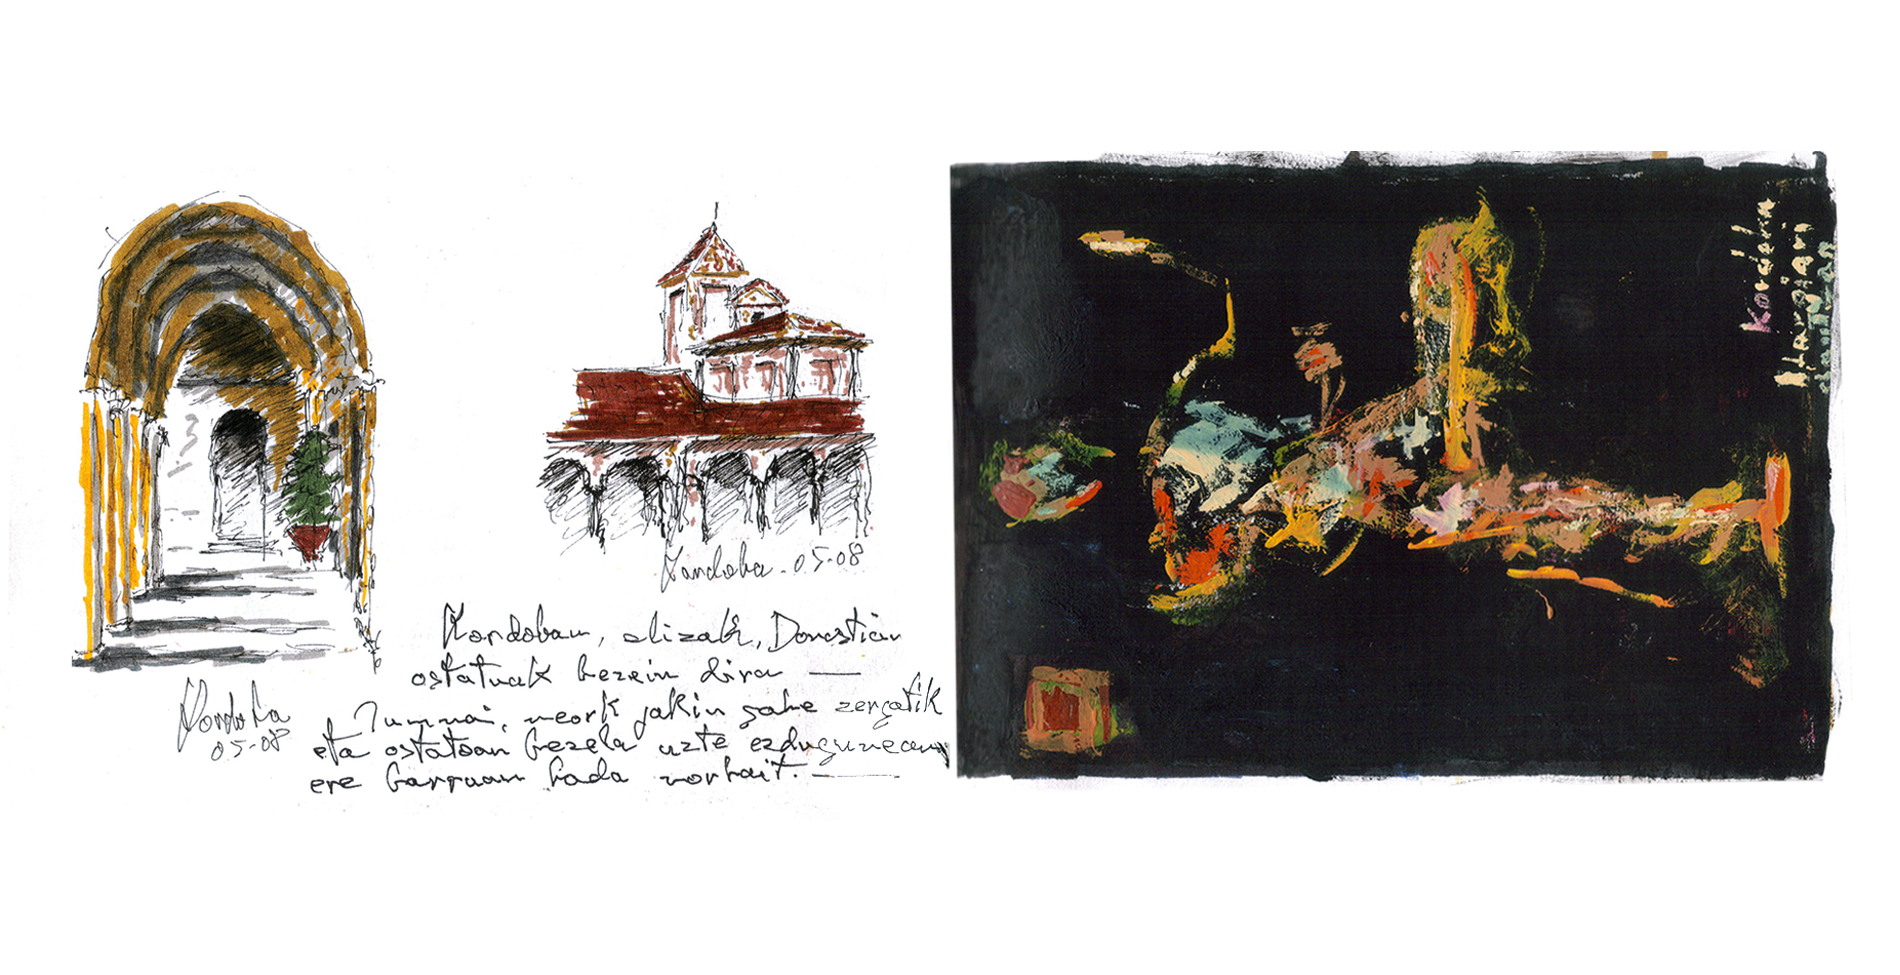 Kordoba
05-08
Kordoba - 05-08
Kordoban, elizak, Donostian
ostatuak bezein dira —
neork jakin gabe zergatik
eta ostatoan bezela uzte ezduguneau
ere barruan bada norbait. —
Kordoba